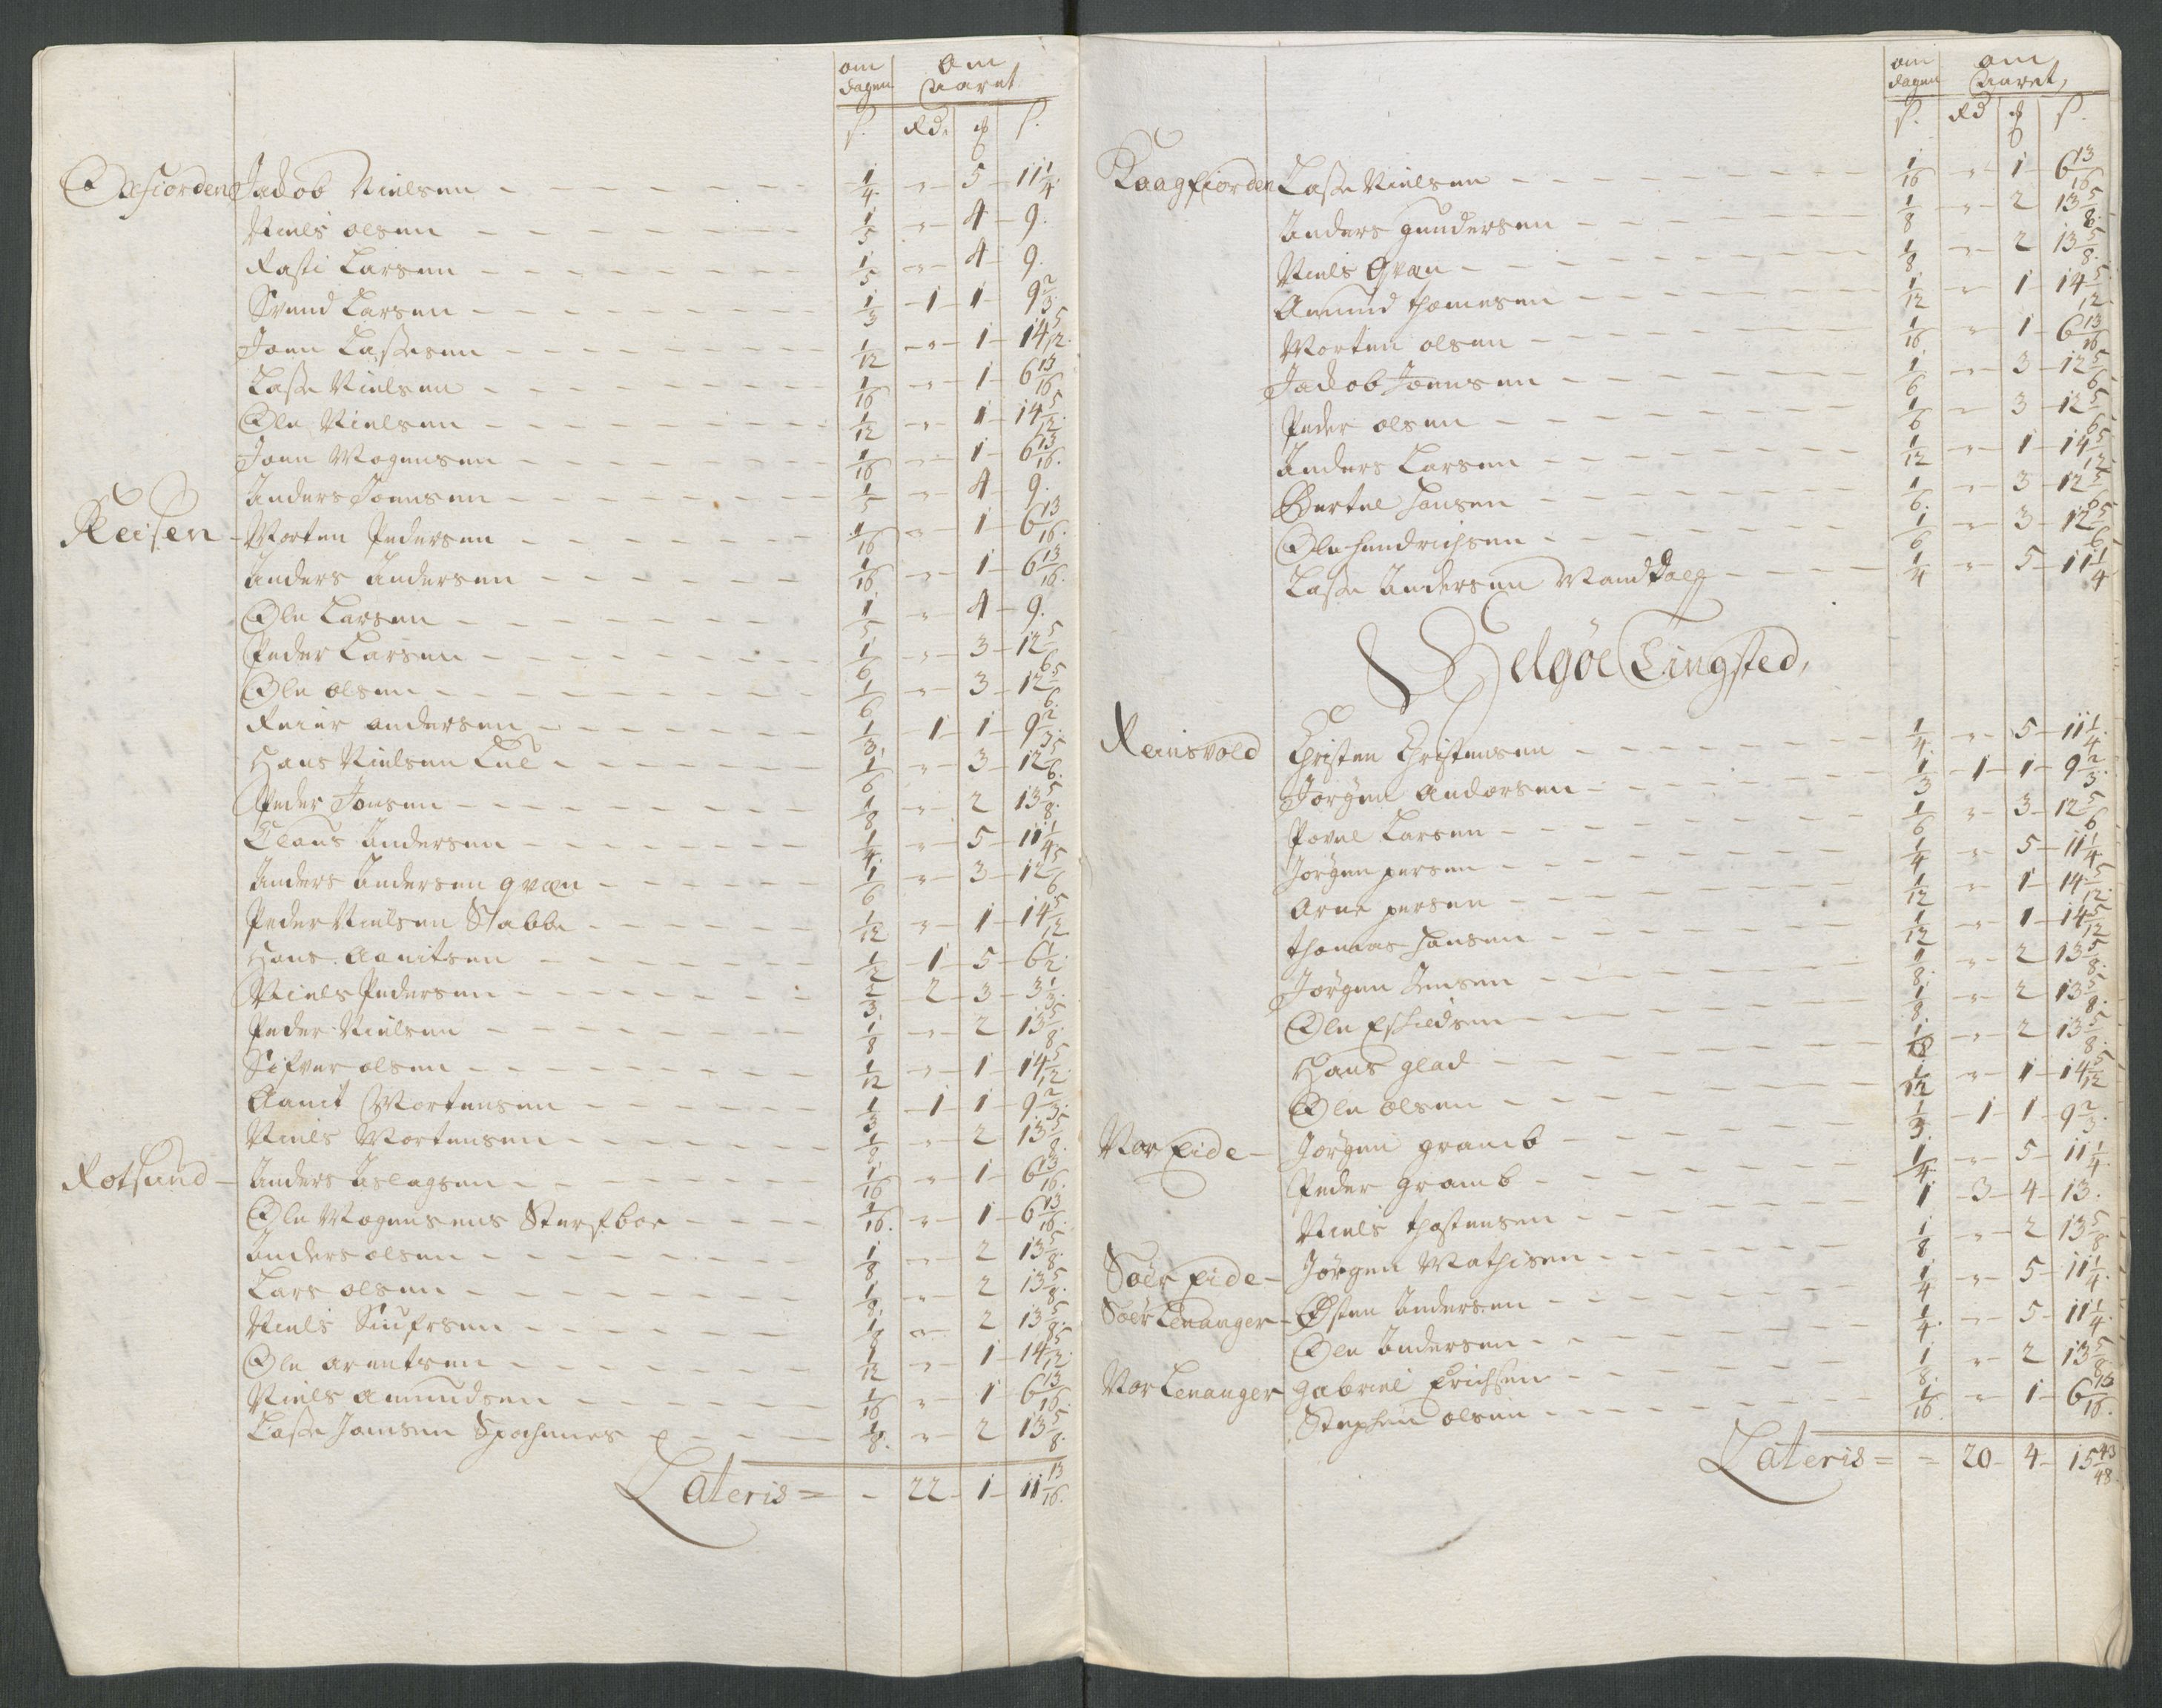 om dagen | Om Aaret
s. | Rd. | ꝑ | s.
Oxfiorden Jacob Nielsen 1/4 " 5 11 1/4
Niels olsen 1/5 " 4 9.
Rasti Larsen 1/5 " 4 9.
Svend Larsen 1/3 1 1 9 2/3
Joen Lassesen 1/12 " 1 14 5/12
Lasse Nielsen 1/16 " 1 6 13/16
Ole Nielsen 1/12 " 1 14 5/12
Joen Mogensen 1/16 " 1 6 13/16
Anders Joensen 1/5 " 4 9.
Reisen Morten Pedersen 1/16 " 1 6 13/16
Anders Andersen 1/16 " 1 6 13/16
Ole Larsen 1/5 " 4 9.
Peder Larsen 1/6 " 3 12 5/6
Ole olsen 1/6 " 3 12 5/6
Reier andersen 1/3 1 1 9 2/3
Hans Nielsen Lul 1/6 " 3 12 5/6
Peder Jonsen 1/8 " 2 13 5/8
Claus Andersen 1/4 " 5 11 1/4
Anders Andersen qvæn 1/6 " 3 12 5/6
Peder Nielsen Stabbe 1/12 " 1 14 5/12
Hans Aanitsen 1/2 1 5 6 1/2
Niels Pedersen 2/3 2 3 3 1/3
Peder Nielsen 1/8 " 2 13 5/8
Sifver olsen 1/12 " 1 14 5/12
Aanit Mortensen 1/3 1 1 9 2/3
Niels Mortensen 1/8 " 2 13 5/8
Rotsund Anders Aslagsen 1/16 " 1 6 13/16
Ole Mogensens Sterfboe 1/16 " 1 6 13/16
Anders olsen 1/8 " 2 13 5/8
Lars olsen 1/8 " 2 13 5/8
Niels Siufrsen 1/8 " 2 13 5/8
Ole arentsen 1/12 " 1 14 5/12
Niels amundsen 1/16 " 1 6 13/16
Lasse Jonsen 1/8 " 2 13 5/8
Lateris = - 22 1 11 13/16
om dagen | om Aaret,
s. | Rd | ꝑ | s.
Kaagfiorden Lasse Nielsen 1/16 " 1 6 13/16
Anders gundersen 1/8 " 2 13 5/8
Niels Qvæn 1/8 " 2 13 5/8
Amund thomesen 1/12 " 1 14 5/12
Morten olsen 1/16 " 1 6 13/16
Jacob Joensen 1/6 " 3 12 5/6
Peder olsen 1/6 " 3 12 5/6
Anders Larsen 1/12 " 1 14 5/12
Bertel Hansen 1/6 " 3 12 5/6
Ole Hendrichsen 1/6 " 3 12 5/6
Lasse Andersen Manddalen 1/4 " 5 11 1/4
Helgøe Tingsted,
Reinsvold Christen Christensen 1/4 " 5 11 1/4
Jørgen Andersen 1/3 1 1 9 2/3
Povel Larsen 1/6 " 3 12 5/6
Jørgen persen 1/4 " 5 11 1/4
Arne persen 1/12 " 1 14 5/12
thomas Hansen 1/12 " 1 14 5/12
Jørgen Jensen 1/8 " 2 13 5/8
Ole Eskildsen 1/8 " 2 13 5/8
Hans glad 1/8 " 2 13 5/8
Ole olsen 1/12 " 1 14 5/12
Nor Eide Jørgen gramb 1/3 1 1 9 2/3
Peder gramb 1/4 " 5 11 1/4
Niels thostensen 1 3 4 13.
Søer Eide Jørgen Mathisen 1/8 " 2 13 5/8
Søer Lenanger Østen Andersen 1/4 " 5 11 1/4
Ole Andersen 1/4 " 5 11 1/4
Nor Lenanger gabriel Erichsen 1/8 " 2 13 5/8
Stephen olsen 1/16 " 1 6 13/16
Lateris = = 20 4 15 43/48